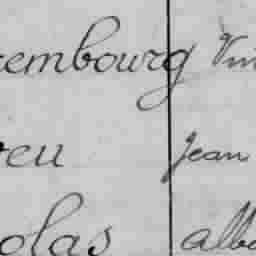 embourg Vin
eu Jean
olas Alb